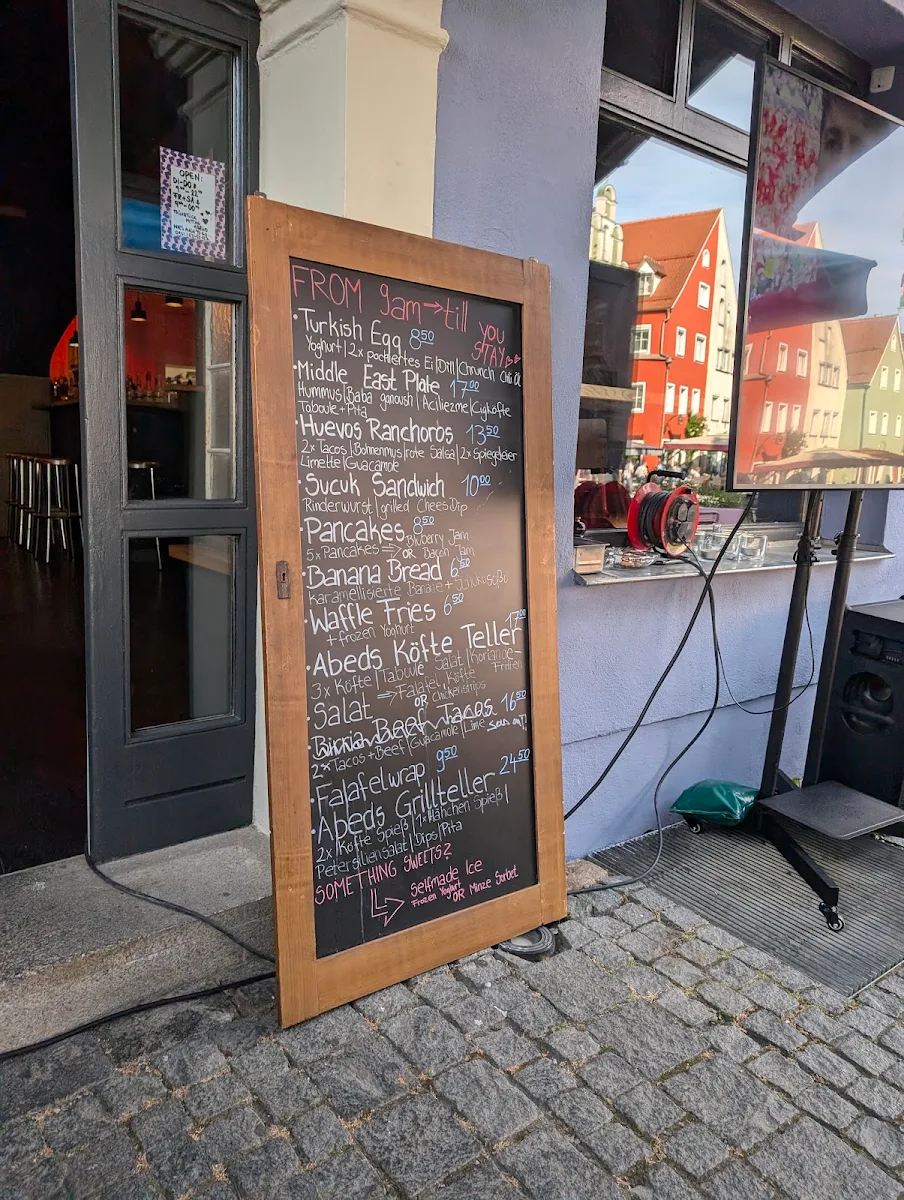 OPEN:
DI-DO
FR+SA
FROM 9am → till you STAY
• Turkish Egg 8⁵⁰
Yoghurt | 2x pochiertes Ei | Dill | Crunch Chili Öl
• Middle East Plate 17⁰⁰
Hummus | Baba ganoush | Aciliezme | Cigköfte
Taboule + Pita
• Huevos Ranchoros 13⁵⁰
2x Tacos | Bohnenmus | rote Salsa | 2x Spiegeleier
Limette | Guacamole
• Sucuk Sandwich 10⁰⁰
Rinderwurst | grilled Chees Dip
• Pancakes 8⁵⁰
5x Pancakes ⇒ Bluberry Jam
OR Bacon Jam
• Banana Bread 6⁵⁰
karamellisierte Banane +
• Waffle Fries 6⁵⁰
+ frozen Yoghurt
• Abeds Köfte Teller 17⁰⁰
3x Köfte | Taboulé Salat | Koriander-
Fritten
• Salat ⇒ Falafel, Köfte
OR Chickenstrips
• Birria Beef Tacos 16⁵⁰
2x Tacos + Beef | Guacamole | Lime
• Falafelwrap 9⁵⁰
• Abeds Grillteller 24⁵⁰
2x Köfte Spieß | 1x Hähnchen Spieß |
Petersilien Salat | Dips | Pita
SOMETHING SWEETS?
Selfmade Ice
Frozen Yoghurt
OR Minze Sorbet